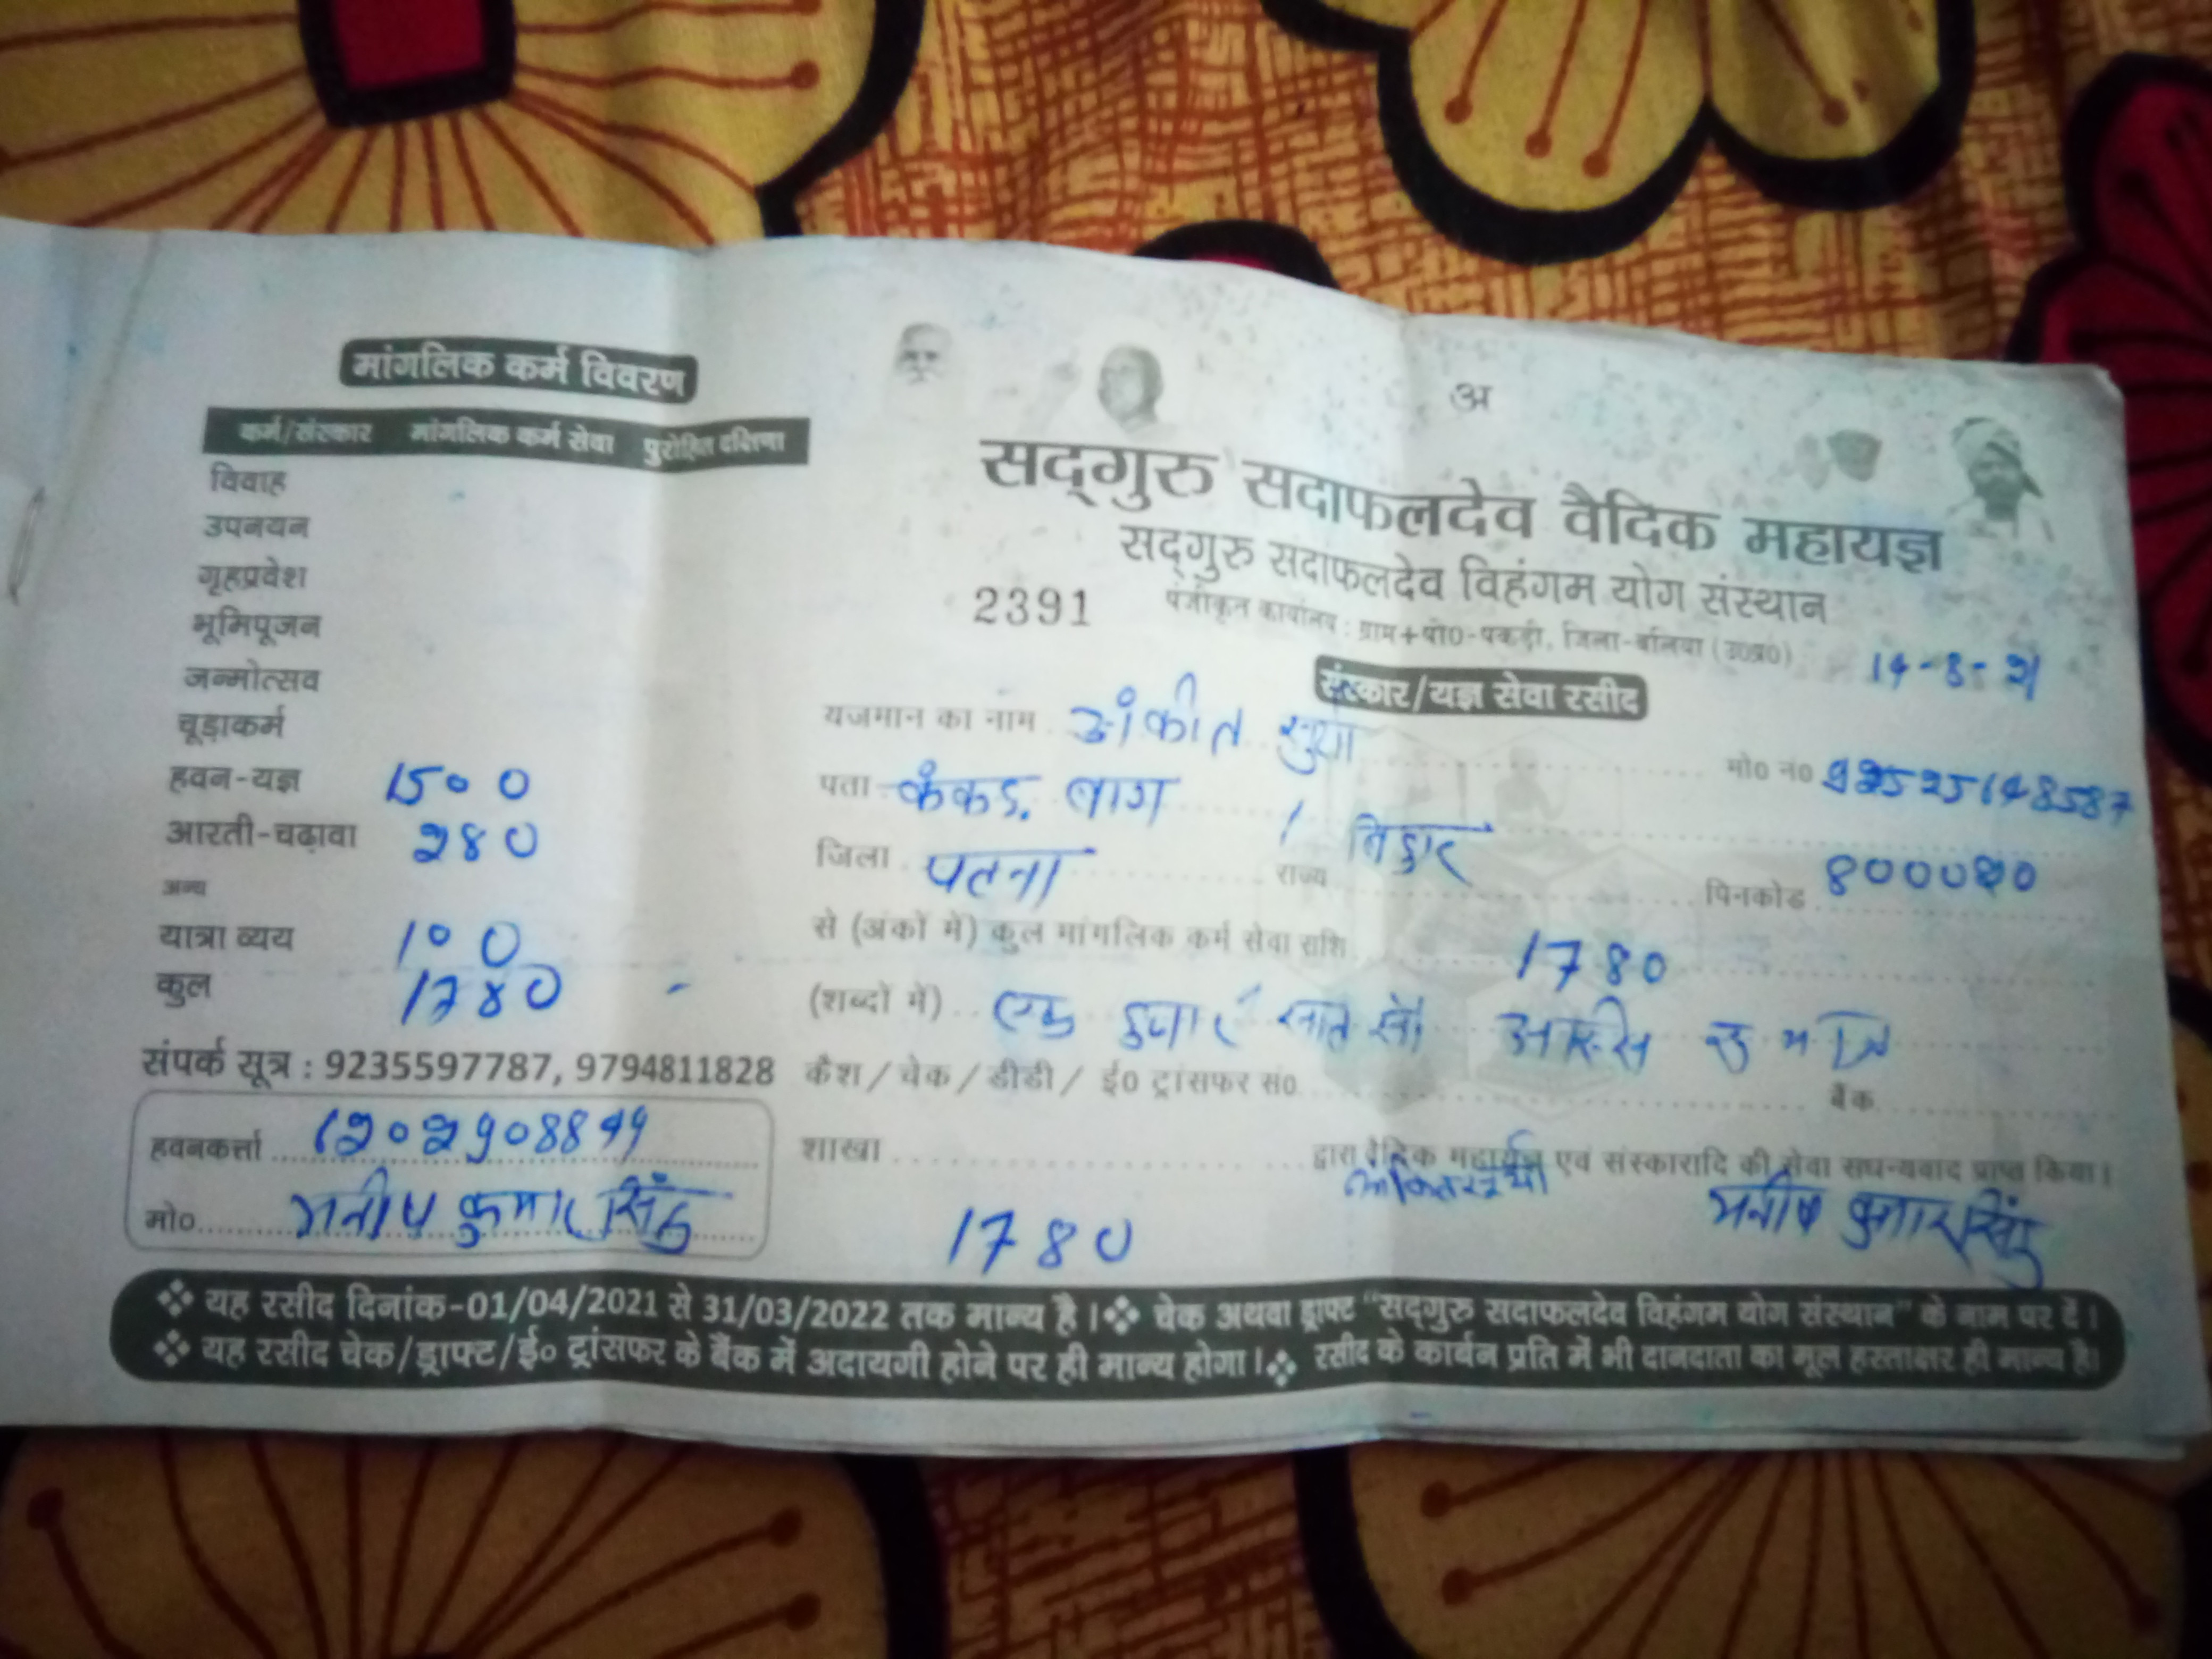 मांगलिक कर्म विवरण
कर्म/संस्कार मांगलिक कर्म सेवा पुरोहित दक्षिणा
विवाह
उपनयन
गृहप्रवेश
भूमिपूजन
जन्मोत्सव
चूड़ाकर्म
हवन-यज्ञ 1500
आरती-चढ़ावा 280
अन्य
यात्रा व्यय 100
कुल 1780
संपर्क सूत्र : 9235597787, 9794811828
हवनकर्त्ता
मो० मनीष कुमार सिंह
अ
सद्गुरु सदाफलदेव वैदिक महायज्ञ
सद्गुरु सदाफलदेव विहंगम योग संस्थान
2391 पंजीकृत कार्यालय : ग्राम+पो0-पकड़ी, जिला-बलिया (उ0प्र0)
संस्कार/यज्ञ सेवा रसीद
यजमान का नाम अंकीत
मो० न०
पता कंकड़ बाग
जिला पतना राज्य बिहार पिनकोड
से (अंकों में) कुल मांगलिक कर्म सेवा राशि 1780
(शब्दों में) एक हजार सात सौ
कैश / चेक / डीडी / ई० ट्रांसफर सं० बैंक
शाखा द्वारा वैदिक महायज्ञ एवं संस्कारादि की सेवा सधन्यवाद प्राप्त किया।
1780 मनीष कुमार सिंह
❖ यह रसीद दिनांक-01/04/2021 से 31/03/2022 तक मान्य है। ❖ चेक अथवा ड्राफ्ट "सद्गुरु सदाफलदेव विहंगम योग संस्थान" के नाम पर दें।
❖ यह रसीद चेक/ड्राफ्ट/ई० ट्रांसफर के बैंक में अदायगी होने पर ही मान्य होगा। ❖ रसीद के कार्बन प्रति में भी दानदाता का मूल हस्ताक्षर ही मान्य है।